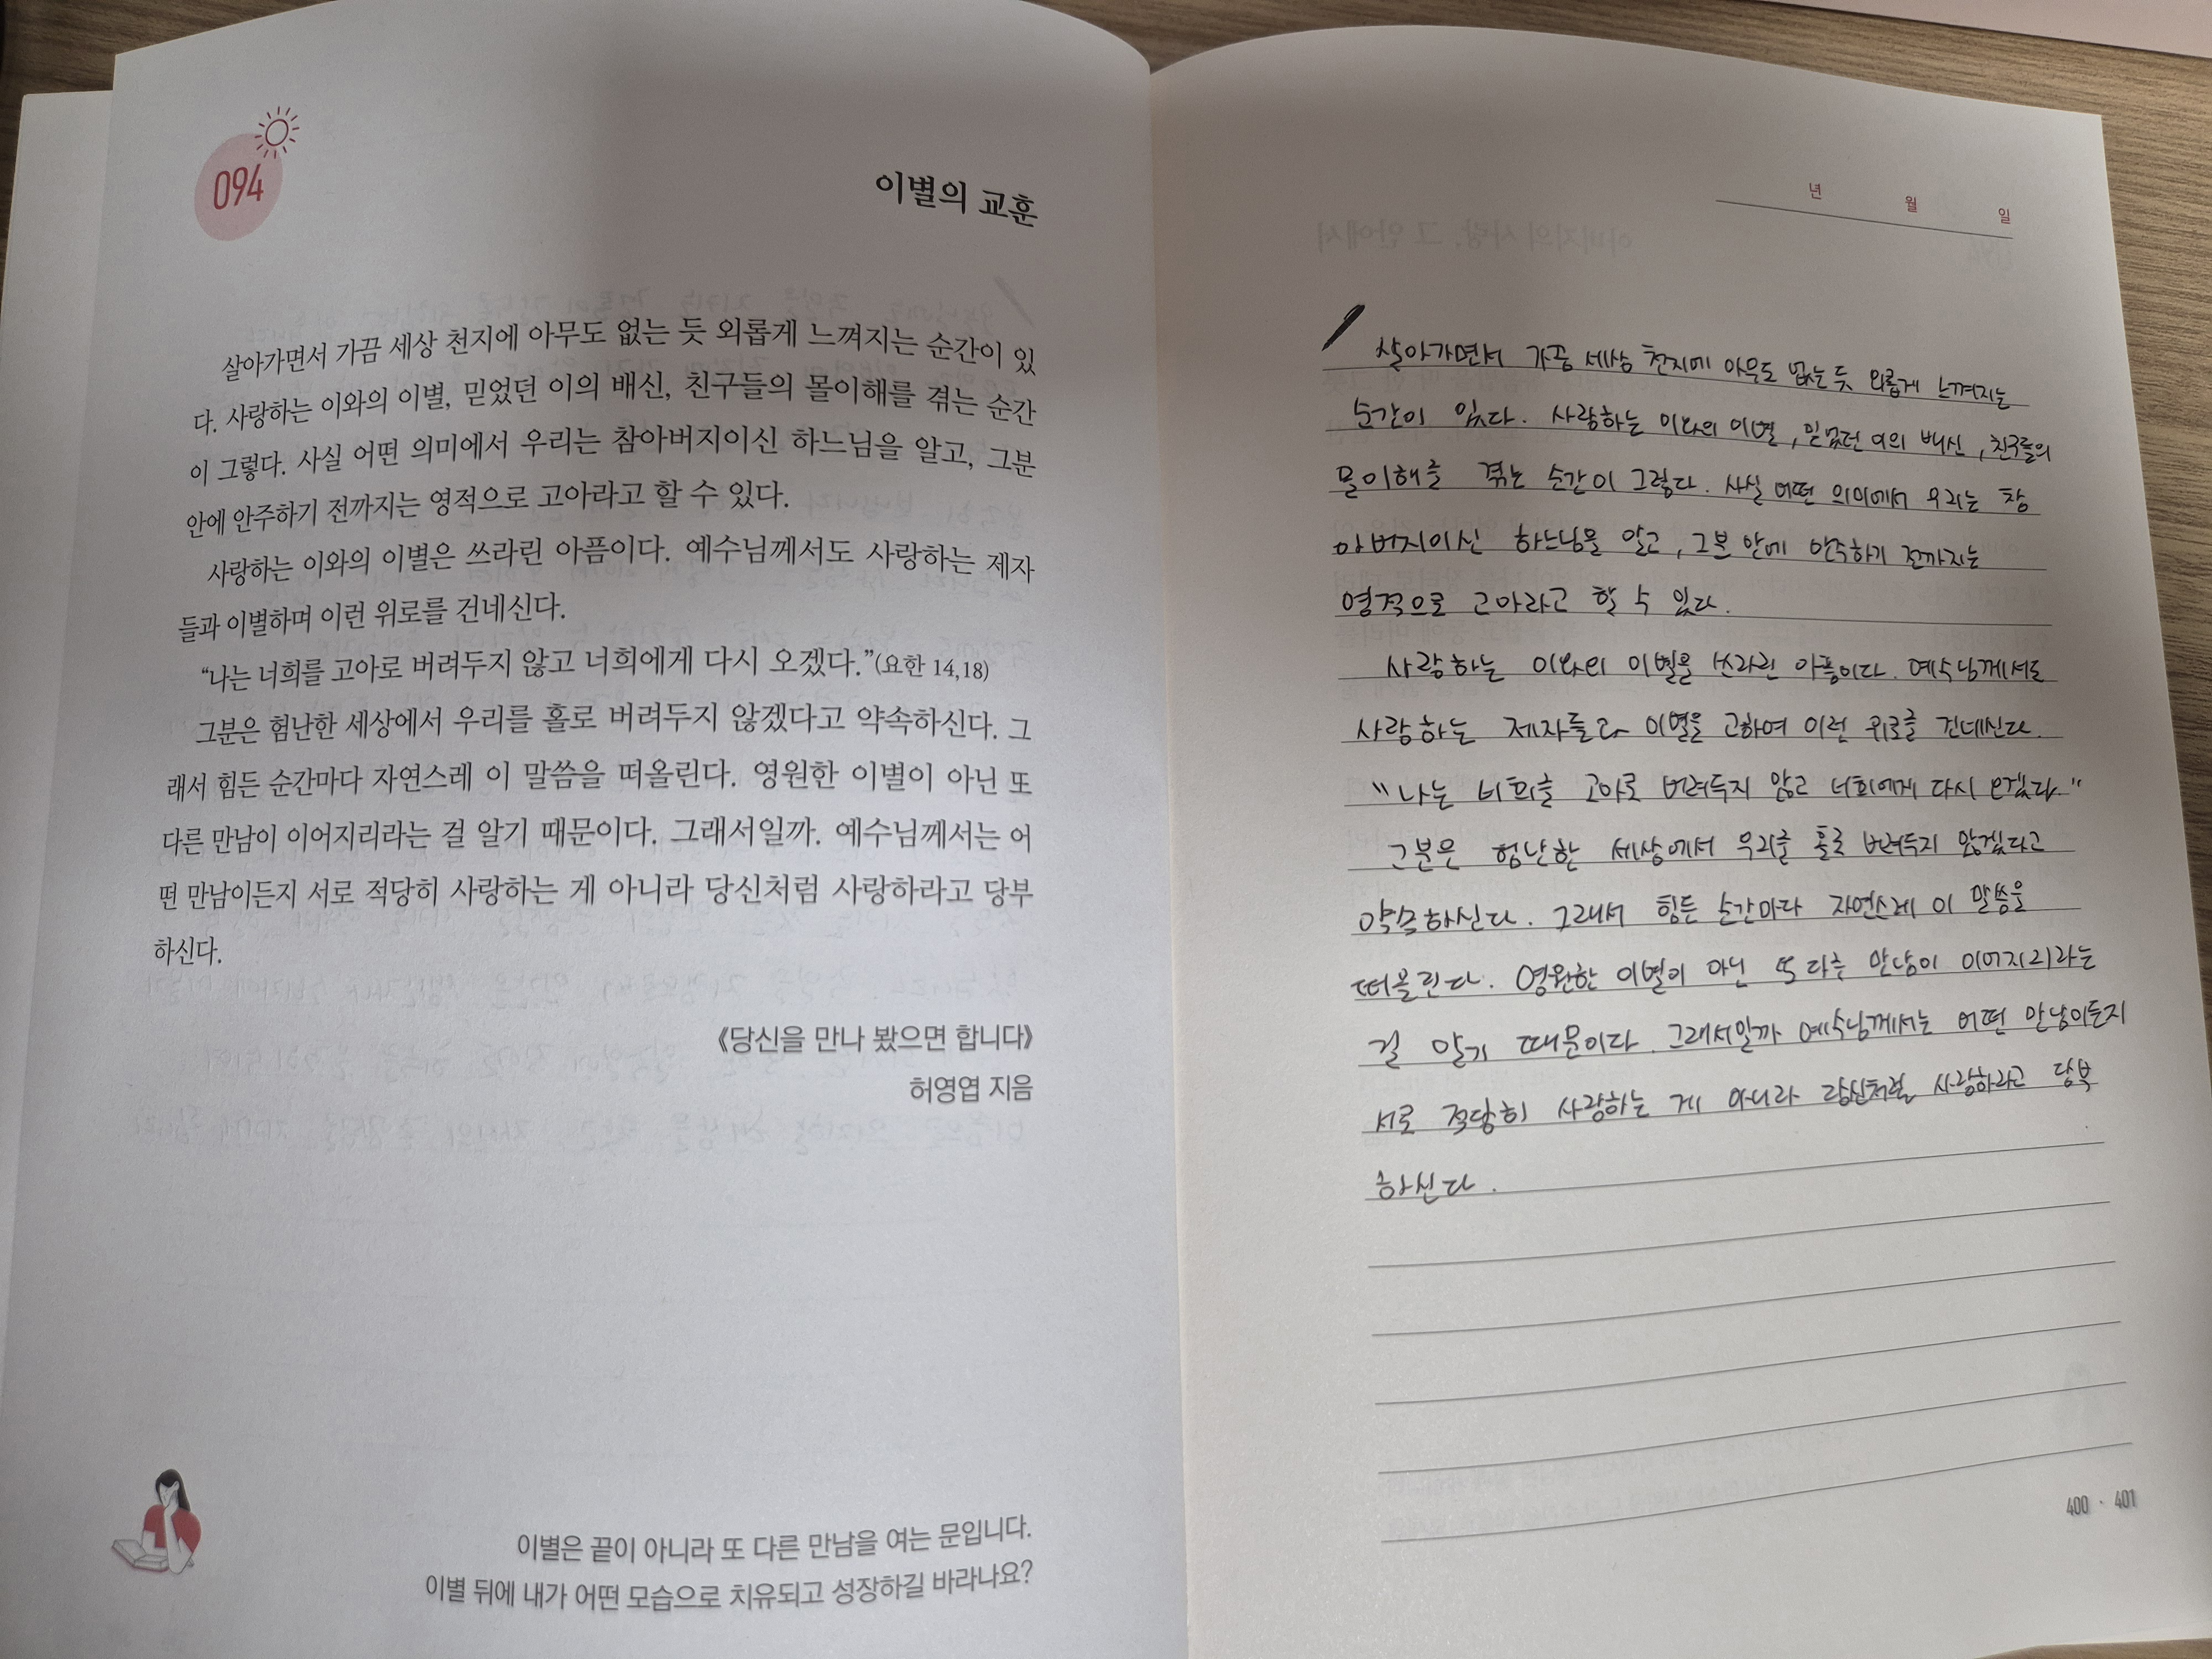 094
이별의 교훈
살아가면서 가끔 세상 천지에 아무도 없는 듯 외롭게 느껴지는 순간이 있
다. 사랑하는 이와의 이별, 믿었던 이의 배신, 친구들의 몰이해를 겪는 순간
이 그렇다. 사실 어떤 의미에서 우리는 참아버지이신 하느님을 알고, 그분
안에 안주하기 전까지는 영적으로 고아라고 할 수 있다.
사랑하는 이와의 이별은 쓰라린 아픔이다. 예수님께서도 사랑하는 제자
들과 이별하며 이런 위로를 건네신다.
“나는 너희를 고아로 버려두지 않고 너희에게 다시 오겠다.”(요한 14,18)
그분은 험난한 세상에서 우리를 홀로 버려두지 않겠다고 약속하신다. 그
래서 힘든 순간마다 자연스레 이 말씀을 떠올린다. 영원한 이별이 아닌 또
다른 만남이 이어지리라는 걸 알기 때문이다. 그래서일까. 예수님께서는 어
떤 만남이든지 서로 적당히 사랑하는 게 아니라 당신처럼 사랑하라고 당부
하신다.
《당신을 만나 봤으면 합니다》
허영엽 지음
이별은 끝이 아니라 또 다른 만남을 여는 문입니다.
이별 뒤에 내가 어떤 모습으로 치유되고 성장하길 바라나요?
년 월 일
살아가면서 가끔 세상 천지에 아무도 없는 듯 외롭게 느껴지는
순간이 있다. 사랑하는 이와의 이별, 믿었던 이의 배신, 친구들의
몰이해를 겪는 순간이 그렇다. 사실 어떤 의미에서 우리는 참
아버지이신 하느님을 알고, 그분 안에 안주하기 전까지는
영적으로 고아라고 할 수 있다.
사랑하는 이와의 이별은 쓰라린 아픔이다. 예수님께서도
사랑하는 제자들과 이별을 고하며 이런 위로를 건네신다.
"나는 너희를 고아로 버려두지 않고 너희에게 다시 오겠다."
그분은 험난한 세상에서 우리를 홀로 버려두지 않겠다고
약속하신다. 그래서 힘든 순간마다 자연스레 이 말씀을
떠올린다. 영원한 이별이 아닌 또 다른 만남이 이어지리라는
걸 알기 때문이다. 그래서일까 예수님께서는 어떤 만남이든지
서로 적당히 사랑하는 게 아니라 당신처럼 사랑하라고 당부
하신다.
400 · 401